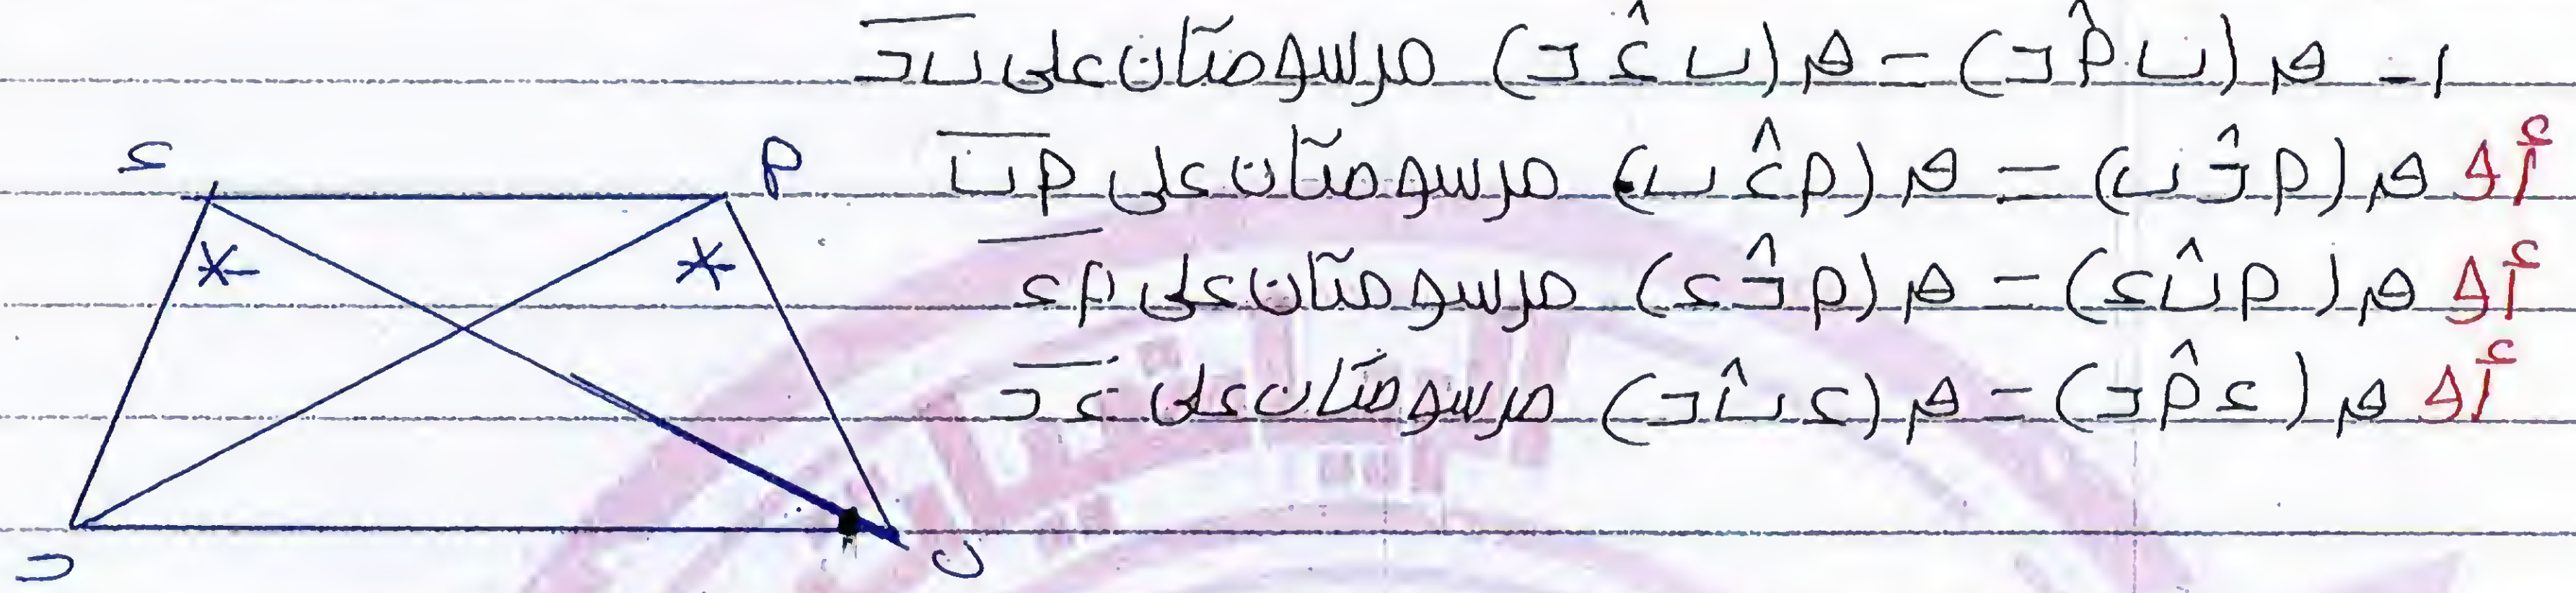 ١- ق (ب أ̂ جـ) = ق (ب ء̂ جـ) مرسومتان على ب جـ
أو ق (أ جـ̂ ب) = ق (أ ء̂ ب) مرسومتان على أ ب
أو ق (أ ب̂ ء) = ق (أ جـ̂ ء) مرسومتان على أ ء
أو ق (ء أ̂ جـ) = ق (ء ب̂ جـ) مرسومتان على ء جـ
ء
أ
جـ
ب